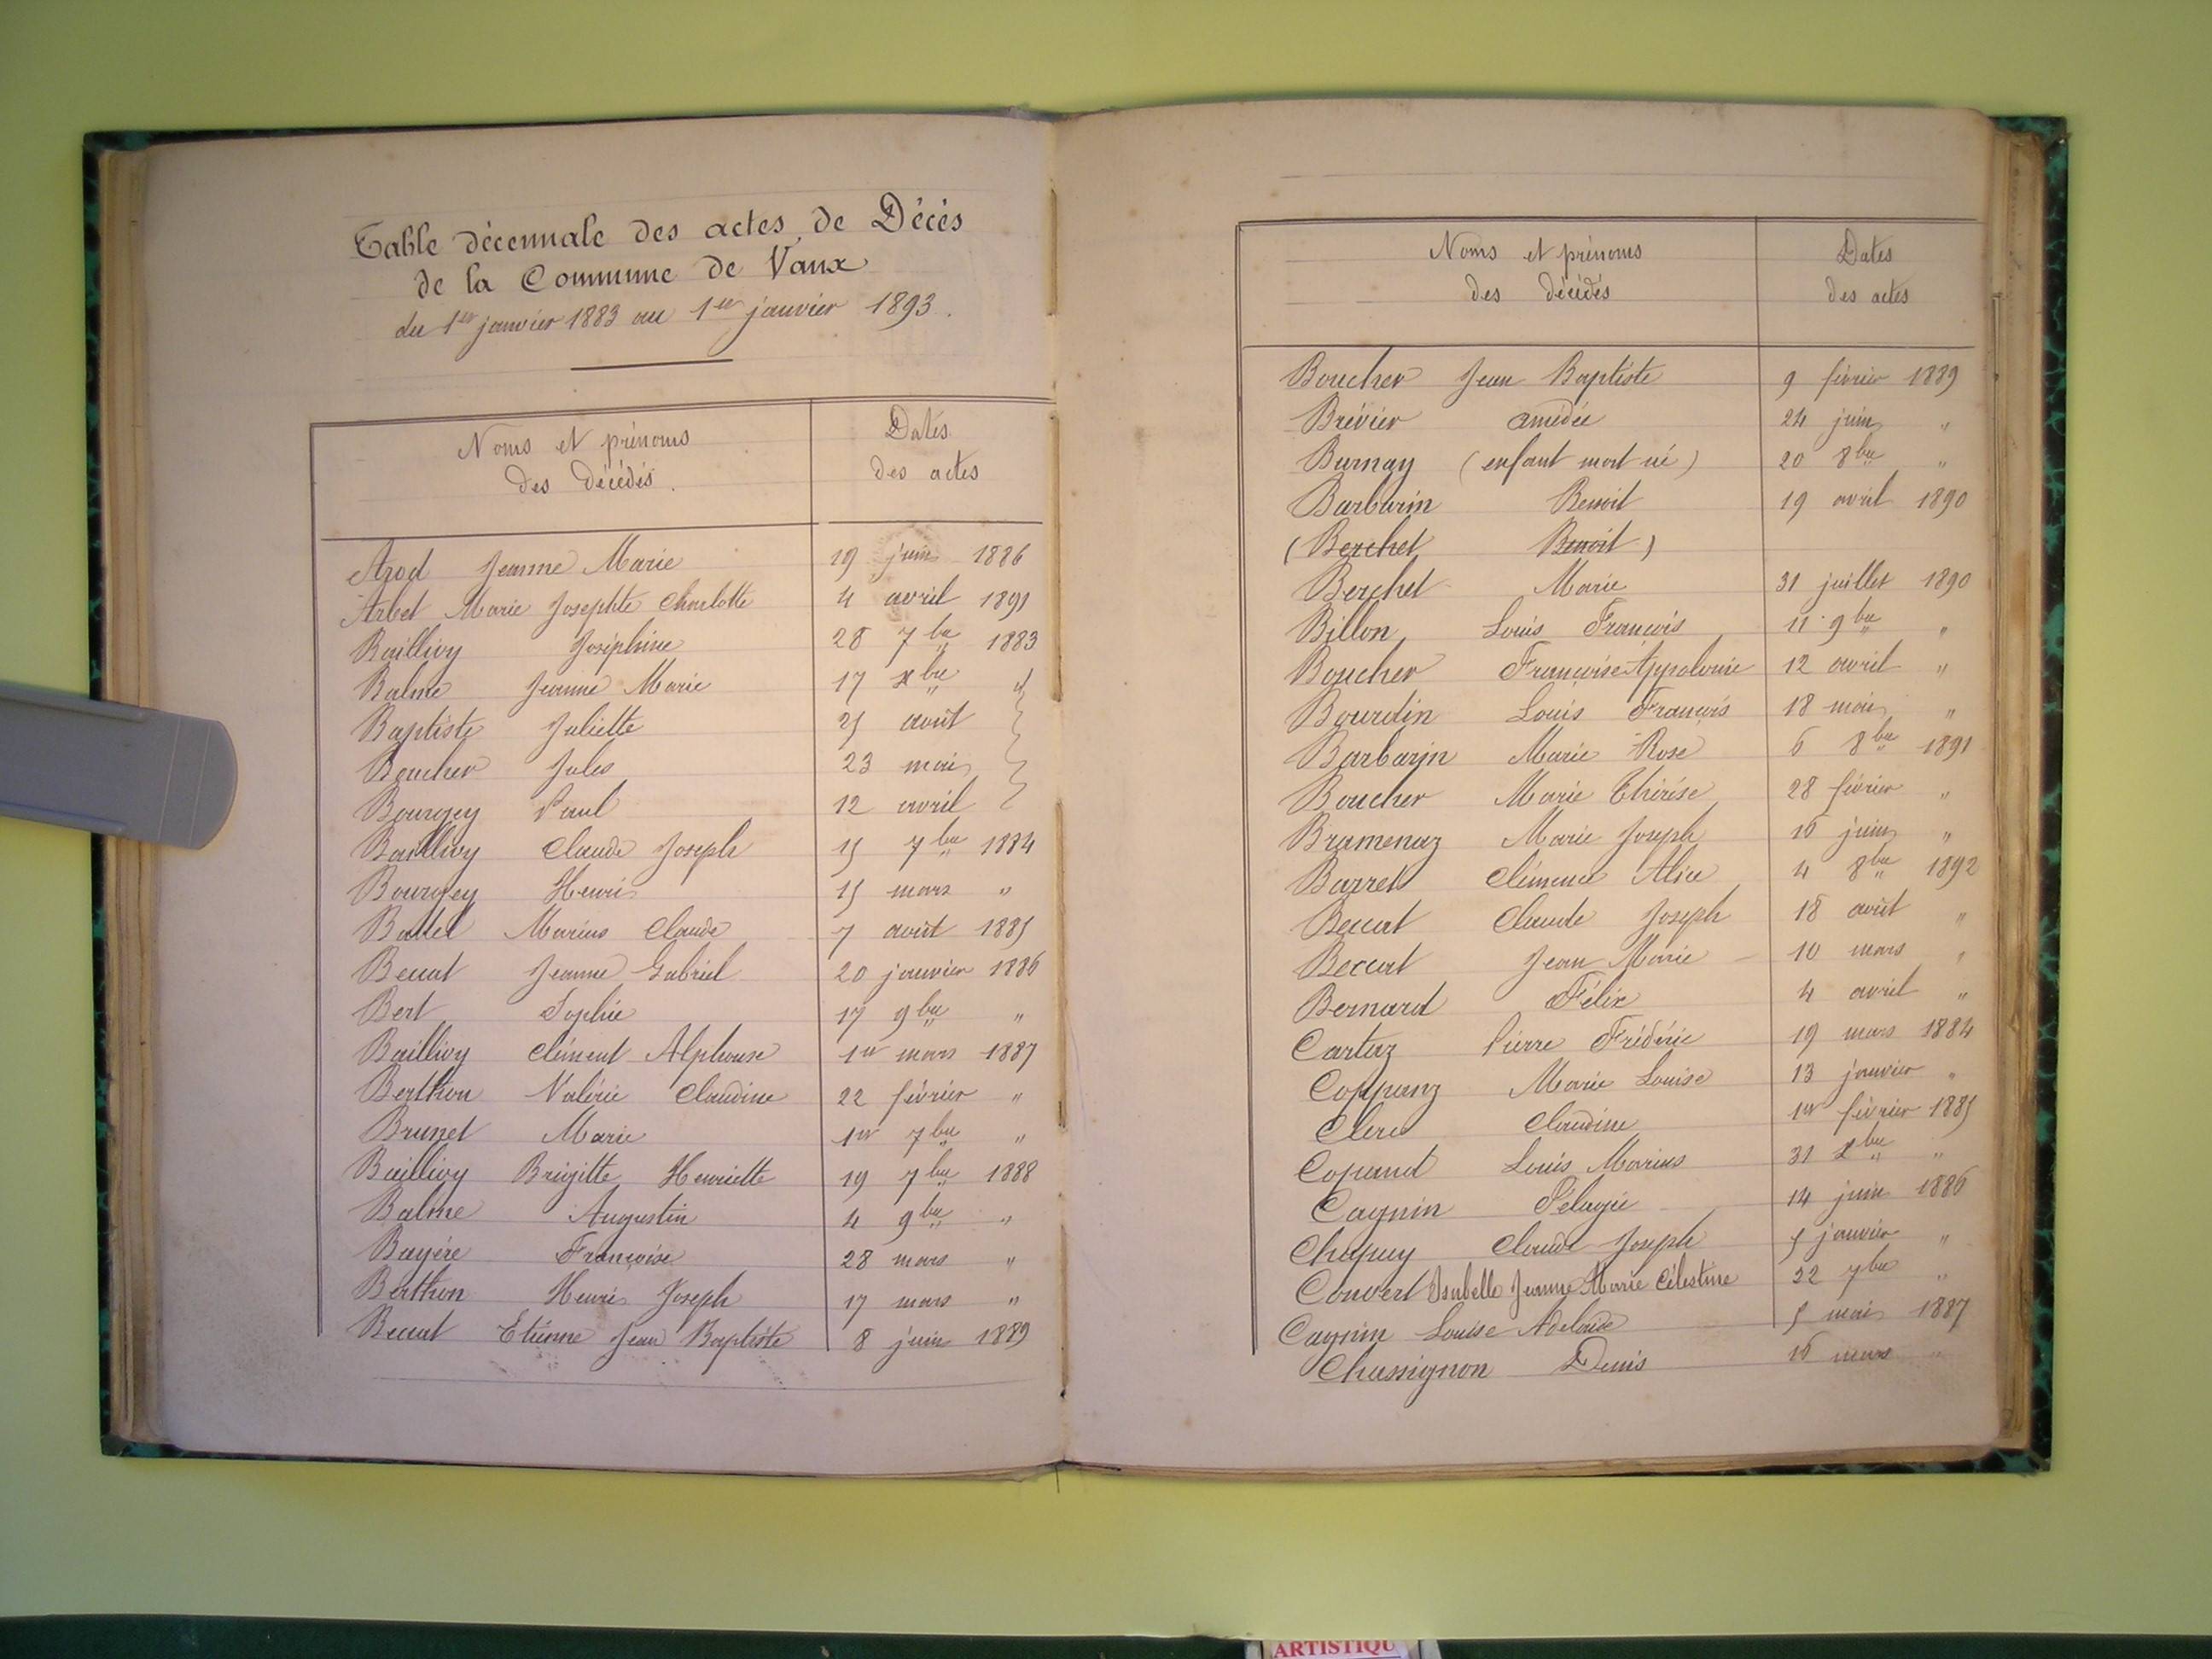 Table décennale des actes de Décès
de la Commune de Vaux
du 1er janvier 1883 au 1er janvier 1893.
Noms et prénoms
des décédés.
Dates
des actes
Arod Jeanne Marie 19 juin 1886
Arbet Marie Josephte Charlotte 4 avril 1891
Baillivy Joséphine 28 7bre 1883
Balme Jeanne Marie 17 xbre "
Baptiste Juliette 25 août
Boucher Jules 23 mai
Bourgey Paul 12 avril
Baillivy Claude Joseph 15 7bre 1884
Bourgey Henri 15 mars "
Ballet Marius Claude 7 août 1885
Beccat Jeanne Gabriel 20 janvier 1886
Bert Sophie 17 9bre "
Baillivy Clément Alphonse 1er mars 1887
Berthon Valérie Claudine 22 février "
Brunet Marie 1er 7bre "
Baillivy Brigitte Henriette 19 7bre 1888
Balme Augustin 4 9bre "
Bayère Françoise 28 mars "
Berthon Henri Joseph 17 mars "
Beccat Etienne Jean Baptiste 8 juin 1889
Noms et prénoms
des décédés
Dates
des actes
Boucher Jean Baptiste 9 février 1889
Brévier Amédée 24 juin "
Burnay (enfant mort né) 20 8bre "
Barbarin Benoit 19 avril 1890
(Berchet Benoit)
Berchet Marie 31 juillet 1890
Billon Louis François 11 9bre "
Boucher Françoise Appolonie 12 avril "
Bourdin Louis François 18 mai "
Barbarin Marie Rose 6 8bre 1891
Boucher Marie Thérèse 28 février "
Bramenaz Marie Joseph 16 juin "
Barret Clémence Alice 4 8bre 1892
Beccat Claude Joseph 18 août "
Beccat Jean Marie 10 mars "
Bernard Félix 4 avril "
Cartaz Pierre Frédéric 19 mars 1884
Coppanz Marie Louise 13 janvier "
Clerc Claudine 1er février 1885
Copand Louis Marius 31 xbre "
Cagnin Pélagie 14 juin 1886
Chapuy Claude Joseph 5 janvier "
Convert Isabelle Jeanne Marie Célestine 22 7bre "
Cagnin Louise Adelaïde 5 mai 1887
Chassignon Denis 16 mars "
ARTISTIQU